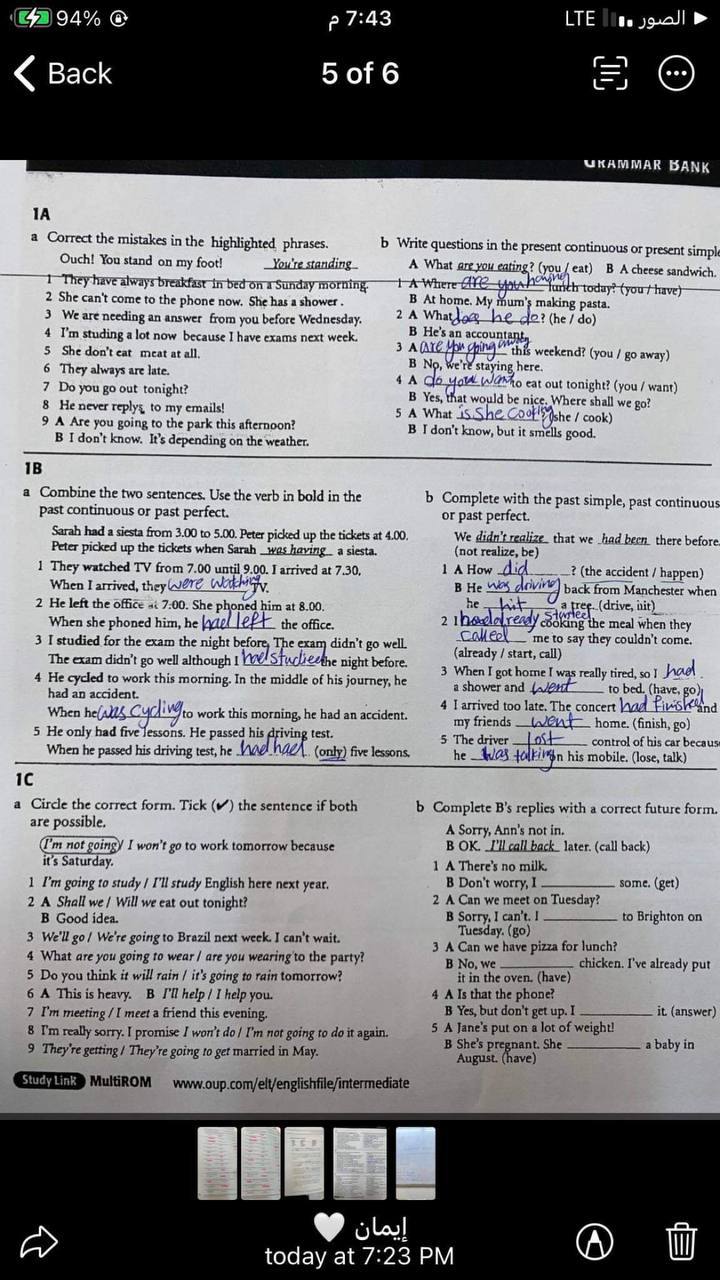 94%
7:43 م
LTE
الصور
Back
5 of 6
GRAMMAR BANK
1A
a Correct the mistakes in the highlighted phrases.
Ouch! You stand on my foot! You're standing
1 They have always breakfast in bed on a Sunday morning.
2 She can't come to the phone now. She has a shower.
3 We are needing an answer from you before Wednesday.
4 I'm studing a lot now because I have exams next week.
5 She don't eat meat at all.
6 They always are late.
7 Do you go out tonight?
8 He never replys to my emails!
9 A Are you going to the park this afternoon?
B I don't know. It's depending on the weather.
b Write questions in the present continuous or present simple
A What are you eating? (you / eat) B A cheese sandwich.
1 A Where are you having lunch today? (you / have)
B At home. My mum's making pasta.
2 A What does he do? (he / do)
B He's an accountant.
3 A are you going away this weekend? (you / go away)
B No, we're staying here.
4 A do you want to eat out tonight? (you / want)
B Yes, that would be nice. Where shall we go?
5 A What is she cooking? (she / cook)
B I don't know, but it smells good.
1B
a Combine the two sentences. Use the verb in bold in the
past continuous or past perfect.
Sarah had a siesta from 3.00 to 5.00. Peter picked up the tickets at 4.00.
Peter picked up the tickets when Sarah was having a siesta.
1 They watched TV from 7.00 until 9.00. I arrived at 7.30.
When I arrived, they were watching TV.
2 He left the office at 7:00. She phoned him at 8.00.
When she phoned him, he had left the office.
3 I studied for the exam the night before. The exam didn't go well.
The exam didn't go well although I had studied the night before.
4 He cycled to work this morning. In the middle of his journey, he
had an accident.
When he was cycling to work this morning, he had an accident.
5 He only had five lessons. He passed his driving test.
When he passed his driving test, he had had (only) five lessons.
b Complete with the past simple, past continuous
or past perfect.
We didn't realize that we had been there before.
(not realize, be)
1 A How did ? (the accident / happen)
B He was driving back from Manchester when
he hit a tree. (drive, hit)
2 I had already started cooking the meal when they
called me to say they couldn't come.
(already / start, call)
3 When I got home I was really tired, so I had
a shower and went to bed. (have, go)
4 I arrived too late. The concert had finished and
my friends went home. (finish, go)
5 The driver lost control of his car because
he was talking on his mobile. (lose, talk)
1C
a Circle the correct form. Tick (✔) the sentence if both
are possible.
I'm not going / I won't go to work tomorrow because
it's Saturday.
1 I'm going to study / I'll study English here next year.
2 A Shall we / Will we eat out tonight?
B Good idea.
3 We'll go / We're going to Brazil next week. I can't wait.
4 What are you going to wear / are you wearing to the party?
5 Do you think it will rain / it's going to rain tomorrow?
6 A This is heavy. B I'll help / I help you.
7 I'm meeting / I meet a friend this evening.
8 I'm really sorry. I promise I won't do / I'm not going to do it again.
9 They're getting / They're going to get married in May.
b Complete B's replies with a correct future form.
A Sorry, Ann's not in.
B OK. I'll call back later. (call back)
1 A There's no milk.
B Don't worry, I some. (get)
2 A Can we meet on Tuesday?
B Sorry, I can't. I to Brighton on
Tuesday. (go)
3 A Can we have pizza for lunch?
B No, we chicken. I've already put
it in the oven. (have)
4 A Is that the phone?
B Yes, but don't get up. I it. (answer)
5 A Jane's put on a lot of weight!
B She's pregnant. She a baby in
August. (have)
Study Link MultiROM www.oup.com/elt/englishfile/intermediate
إيمان
today at 7:23 PM